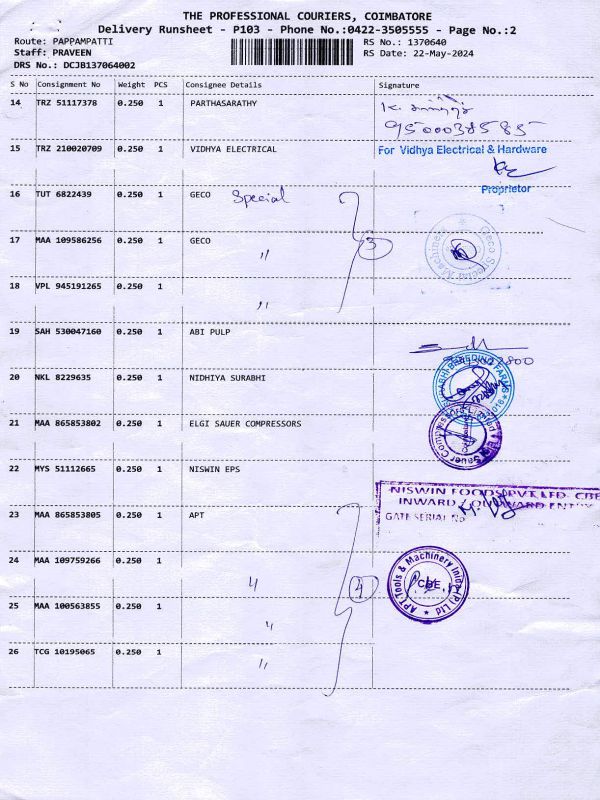 THE PROFESSIONAL COURIERS, COIMBATORE
Delivery Runsheet - P103 - Phone No.:0422-3505555 - Page No.:2
Route: PAPPAMPATTI RS No.: 1370640
Staff: PRAVEEN RS Date: 22-May-2024
DRS No.: DCJB137064002
S No Consignment No Weight PCS Consignee Details Signature
14 TRZ 51117378 0.250 1 PARTHASARATHY
9500038585
15 TRZ 210020709 0.250 1 VIDHYA ELECTRICAL For Vidhya Electrical & Hardware
Proprietor
16 TUT 6822439 0.250 1 GECO Special
17 MAA 109586256 0.250 1 GECO 3
"
18 VPL 945191265 0.250 1
"
19 SAH 530047160 0.250 1 ABI PULP
20 NKL 8229635 0.250 1 NIDHIYA SURABHI
21 MAA 865853802 0.250 1 ELGI SAUER COMPRESSORS
22 MYS 51112665 0.250 1 NISWIN EPS
NISWIN FOODS PVT LTD. CBE
INWARD / OUTWARD ENTRY
23 MAA 865853805 0.250 1 APT GATE SERIAL No
24 MAA 109759266 0.250 1 4
" APT Tools & Machinery India (P) Ltd CBE
25 MAA 100563855 0.250 1
"
26 TCG 10195065 0.250 1
"